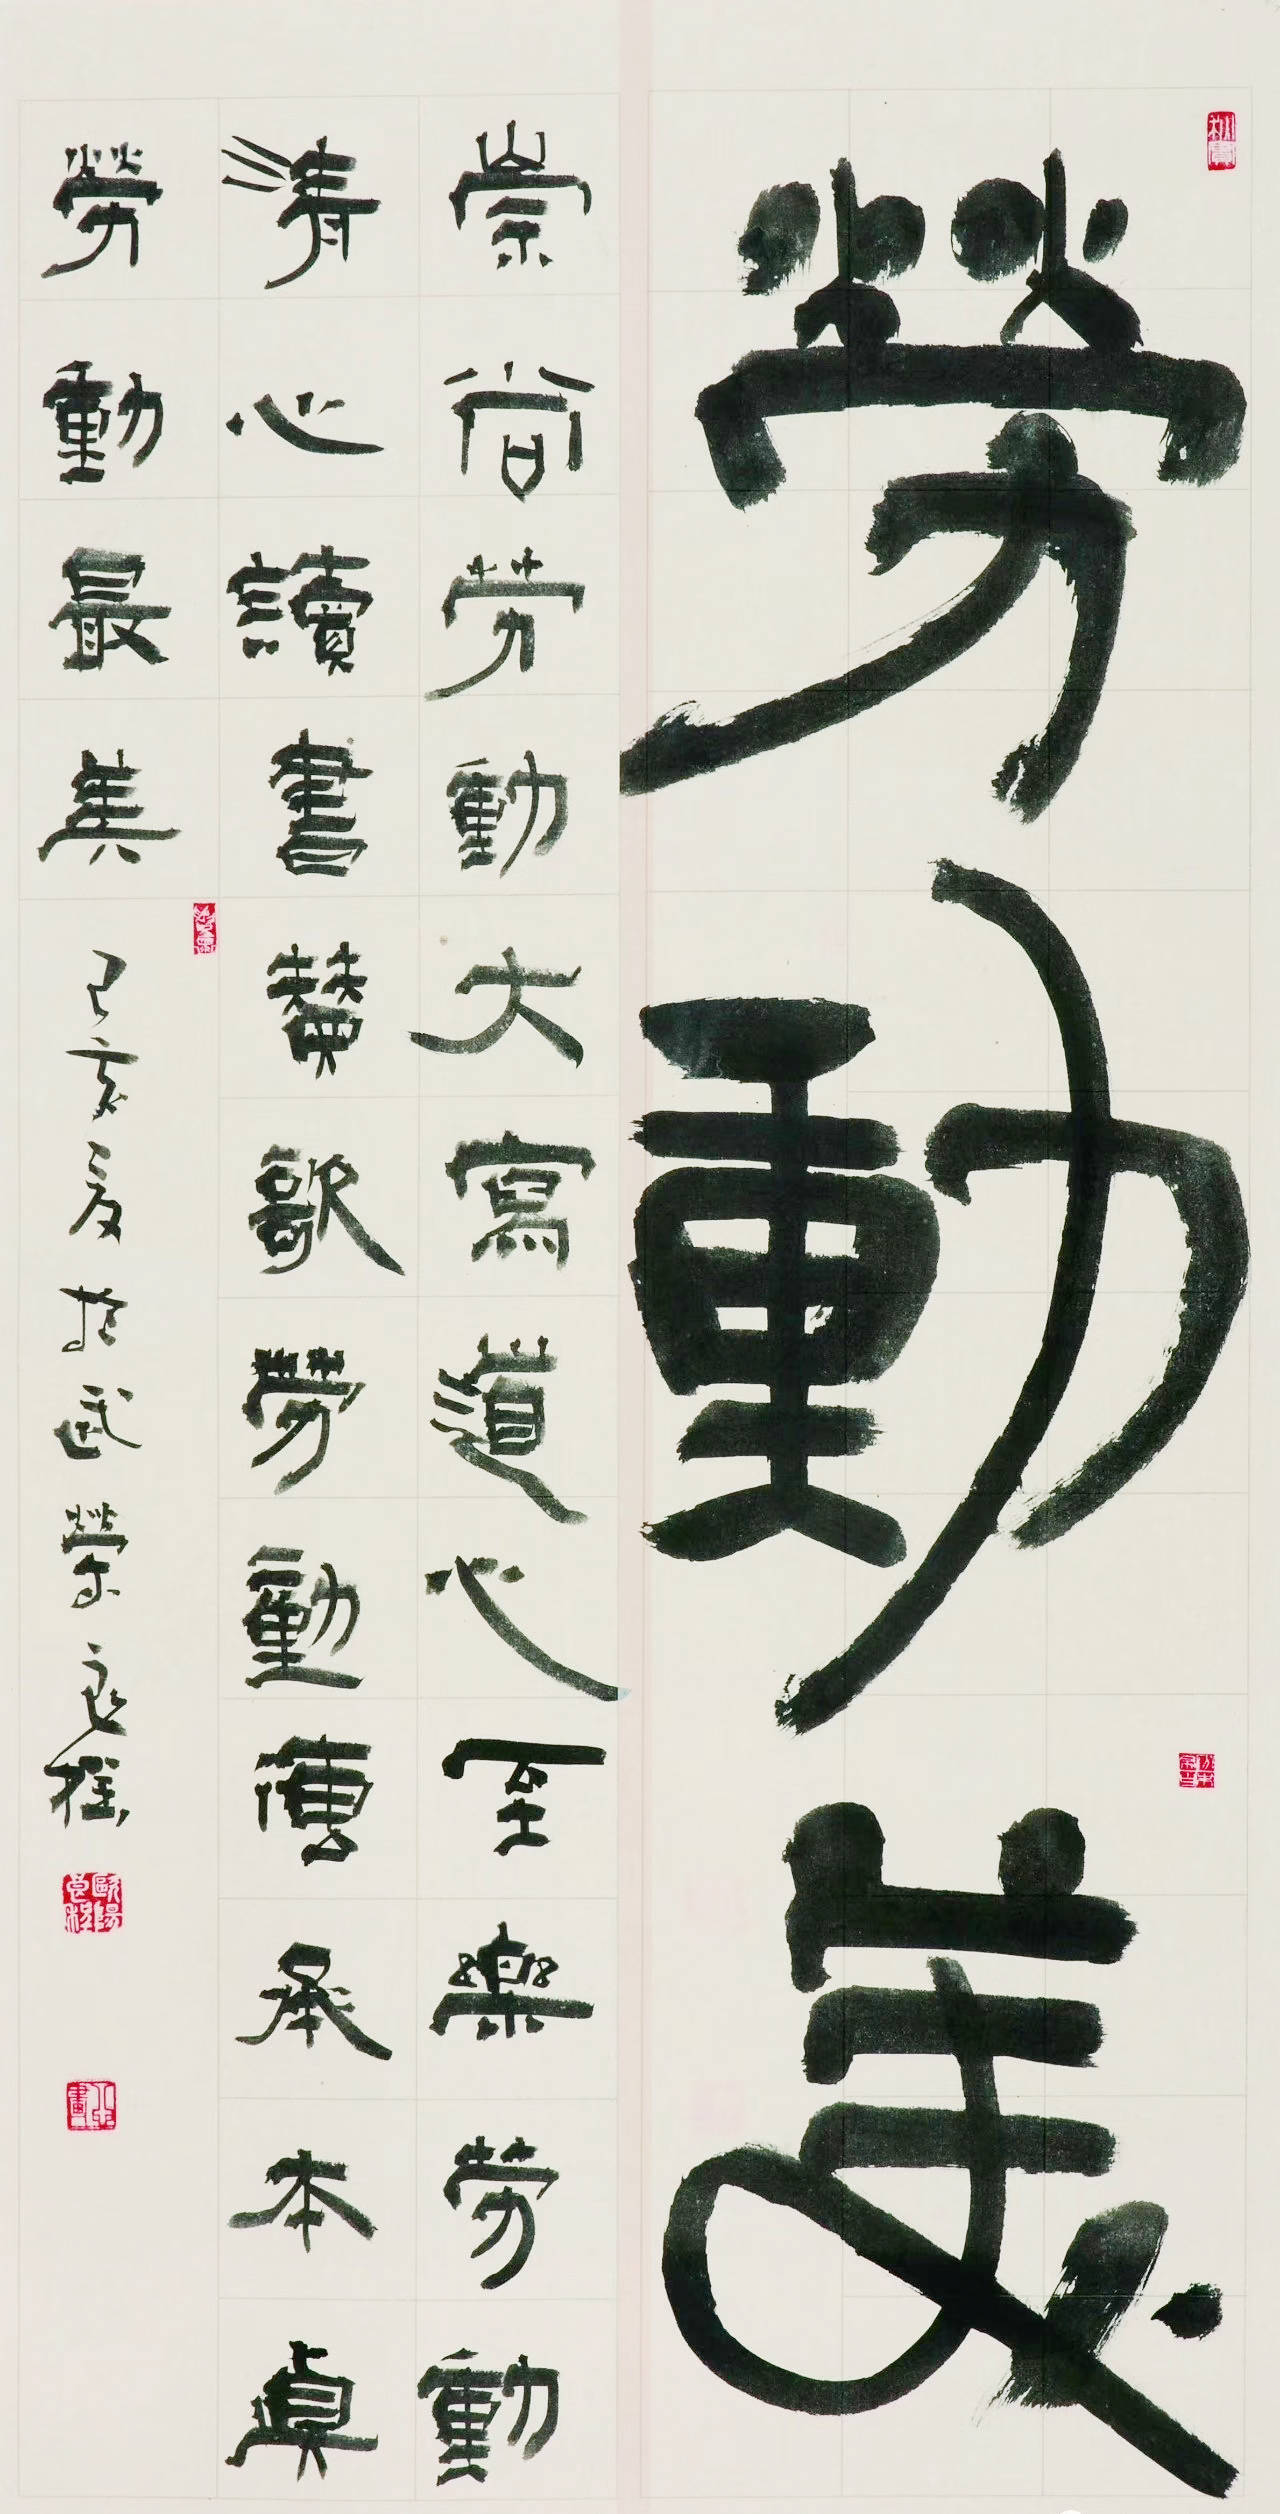 勞動美
崇尚勞動大寫道心至樂勞動
清心讀書贊歌勞動傳承本真
勞動最美
己亥夏於武榮良程
歐陽良程